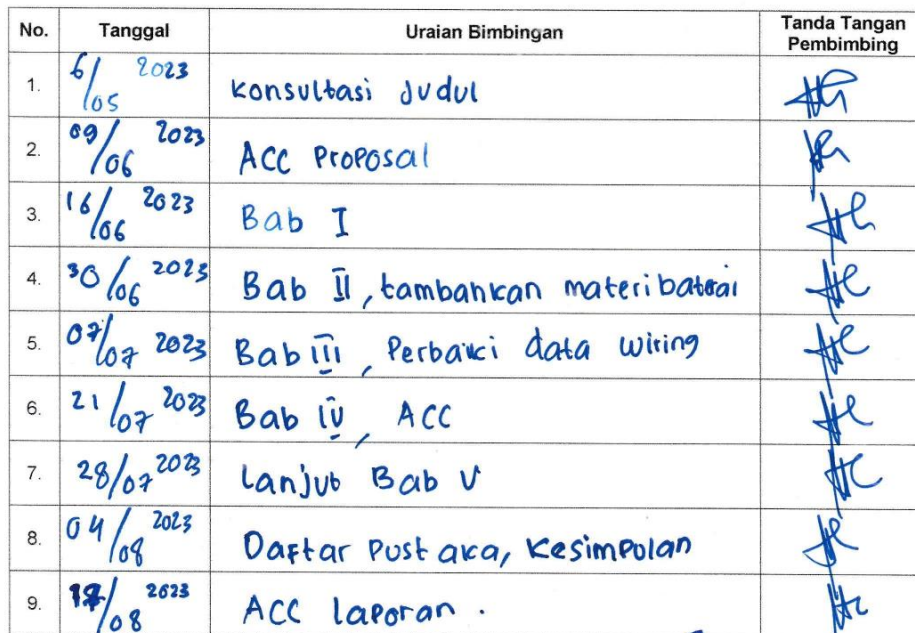 No. Tanggal Uraian Bimbingan Tanda Tangan Pembimbing
1. 6/05 2023 Konsultasi Judul
2. 09/06 2023 ACC Proposal
3. 16/06 2023 Bab I
4. 30/06 2023 Bab II, tambahkan materi baterai
5. 07/07 2023 Bab III, Perbaiki data wiring
6. 21/07 2023 Bab IV, ACC
7. 28/07 2023 Lanjut Bab V
8. 04/08 2023 Daftar Pustaka, Kesimpulan
9. /08 2023 ACC laporan.